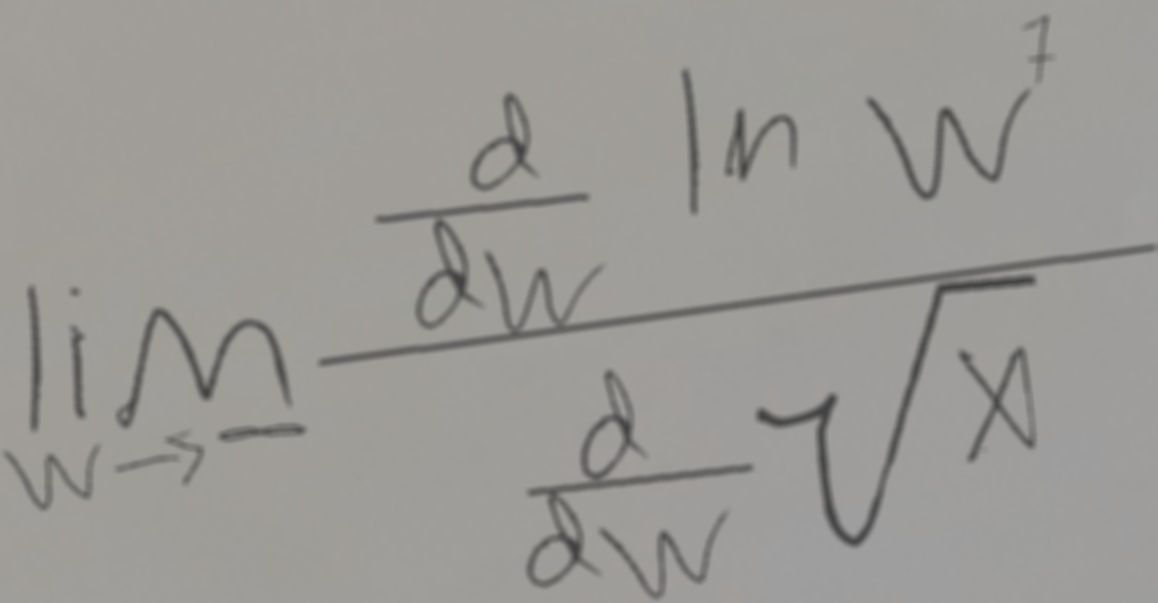 \lim_{w \to -} \frac{\frac{d}{dw} \ln w^7}{\frac{d}{dw} \sqrt{x}}